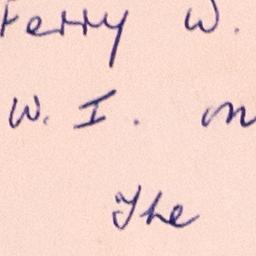 Ferry W.
W. I. on
The